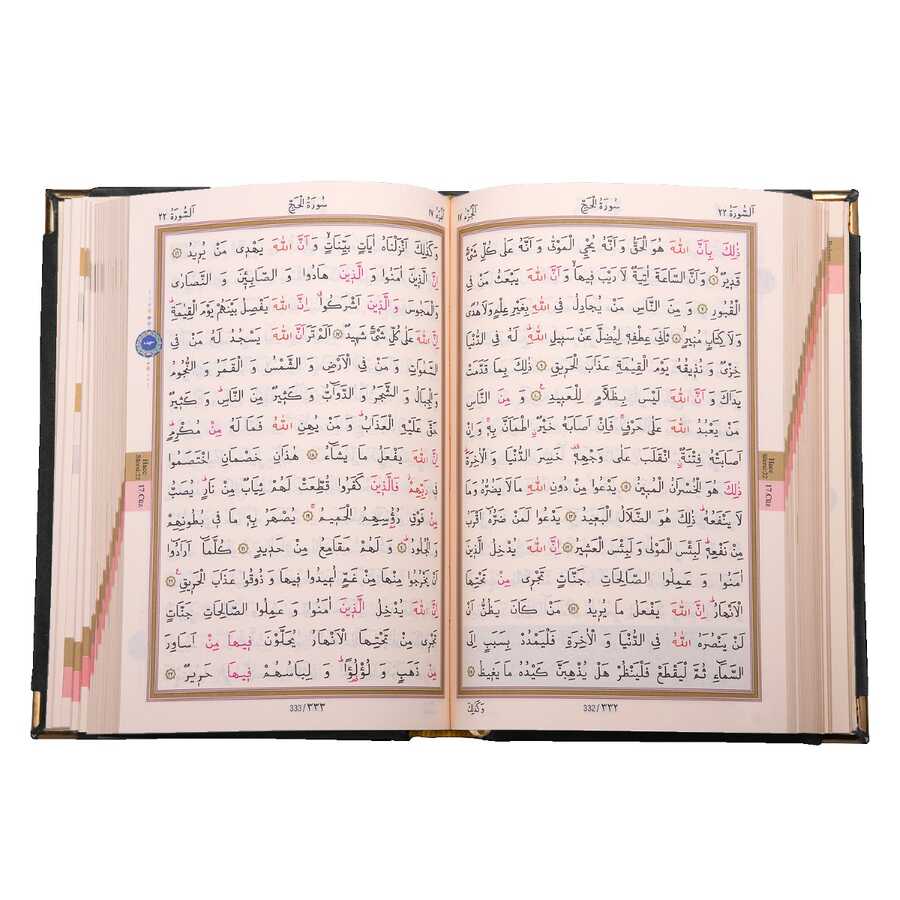 اَلسُّورَةُ ٢٢
سُورَةُ الْحَجِّ
اَلْجُزْءُ ١٧
ذٰلِكَ بِاَنَّ اللّٰهَ هُوَ الْحَقُّ وَ اَنَّهُ يُحْيِ الْمَوْتٰى وَ اَنَّهُ عَلٰى كُلِّ شَىْءٍ
قَدٖيرٌ ٦ وَ اَنَّ السَّاعَةَ اٰتِيَةٌ لَا رَيْبَ فٖيهَا وَ اَنَّ اللّٰهَ يَبْعَثُ مَنْ فِى
الْقُبُورِ ٧ وَ مِنَ النَّاسِ مَنْ يُجَادِلُ فِى اللّٰهِ بِغَيْرِ عِلْمٍ وَلَا هُدًى
وَلَا كِتَابٍ مُنٖيرٍ ٨ ثَانِىَ عِطْفِهٖ لِيُضِلَّ عَنْ سَبٖيلِ اللّٰهِ لَهُ فِى الدُّنْيَا
خِزْىٌ وَ نُذٖيقُهُ يَوْمَ الْقِيٰمَةِ عَذَابَ الْحَرٖيقِ ٩ ذٰلِكَ بِمَا قَدَّمَتْ
يَدَاكَ وَ اَنَّ اللّٰهَ لَيْسَ بِظَلَّامٍ لِلْعَبٖيدِ ١٠ وَ مِنَ النَّاسِ
مَنْ يَعْبُدُ اللّٰهَ عَلٰى حَرْفٍ فَاِنْ اَصَابَهُ خَيْرٌ اطْمَاَنَّ بِهٖ وَ اِنْ
اَصَابَتْهُ فِتْنَةٌ انْقَلَبَ عَلٰى وَجْهِهٖ خَسِرَ الدُّنْيَا وَ الْاٰخِرَةَ
ذٰلِكَ هُوَ الْخُسْرَانُ الْمُبٖينُ ١١ يَدْعُوا مِنْ دُونِ اللّٰهِ مَا لَا يَضُرُّهُ وَمَا
لَا يَنْفَعُهُ ذٰلِكَ هُوَ الضَّلَالُ الْبَعٖيدُ ١٢ يَدْعُوا لَمَنْ ضَرُّهُ اَقْرَبُ
مِنْ نَفْعِهٖ لَبِئْسَ الْمَوْلٰى وَ لَبِئْسَ الْعَشٖيرُ ١٣ اِنَّ اللّٰهَ يُدْخِلُ الَّذٖينَ
اٰمَنُوا وَ عَمِلُوا الصَّالِحَاتِ جَنَّاتٍ تَجْرٖى مِنْ تَحْتِهَا
الْاَنْهَارُ اِنَّ اللّٰهَ يَفْعَلُ مَا يُرٖيدُ ١٤ مَنْ كَانَ يَظُنُّ اَنْ
لَنْ يَنْصُرَهُ اللّٰهُ فِى الدُّنْيَا وَ الْاٰخِرَةِ فَلْيَمْدُدْ بِسَبَبٍ اِلَى
السَّمَاءِ ثُمَّ لْيَقْطَعْ فَلْيَنْظُرْ هَلْ يُذْهِبَنَّ كَيْدُهُ مَا يَغٖيظُ ١٥
332/٣٣٢
وَكَذٰلِكَ
Hacc
Sûresi:22
17.Cüz
اَلسُّورَةُ ٢٢
سُورَةُ الْحَجِّ
اَلْجُزْءُ ١٧
وَكَذٰلِكَ اَنْزَلْنَاهُ اٰيَاتٍ بَيِّنَاتٍ وَ اَنَّ اللّٰهَ يَهْدٖى مَنْ يُرٖيدُ ١٦
اِنَّ الَّذٖينَ اٰمَنُوا وَ الَّذٖينَ هَادُوا وَ الصَّابِئٖينَ وَ النَّصَارٰى
وَ الْمَجُوسَ وَ الَّذٖينَ اَشْرَكُوا اِنَّ اللّٰهَ يَفْصِلُ بَيْنَهُمْ يَوْمَ الْقِيٰمَةِ
اِنَّ اللّٰهَ عَلٰى كُلِّ شَىْءٍ شَهٖيدٌ ١٧ اَلَمْ تَرَ اَنَّ اللّٰهَ يَسْجُدُ لَهُ مَنْ فِى
السَّمٰوَاتِ وَ مَنْ فِى الْاَرْضِ وَ الشَّمْسُ وَ الْقَمَرُ وَ النُّجُومُ
وَ الْجِبَالُ وَ الشَّجَرُ وَ الدَّوَابُّ وَ كَثٖيرٌ مِنَ النَّاسِ وَ كَثٖيرٌ
حَقَّ عَلَيْهِ الْعَذَابُ وَ مَنْ يُهِنِ اللّٰهُ فَمَا لَهُ مِنْ مُكْرِمٍ
اِنَّ اللّٰهَ يَفْعَلُ مَا يَشَاءُ ١٨ هٰذَانِ خَصْمَانِ اخْتَصَمُوا
فٖى رَبِّهِمْ فَالَّذٖينَ كَفَرُوا قُطِّعَتْ لَهُمْ ثِيَابٌ مِنْ نَارٍ يُصَبُّ
مِنْ فَوْقِ رُؤُسِهِمُ الْحَمٖيمُ ١٩ يُصْهَرُ بِهٖ مَا فٖى بُطُونِهِمْ
وَ الْجُلُودُ ٢٠ وَ لَهُمْ مَقَامِعُ مِنْ حَدٖيدٍ ٢١ كُلَّمَا اَرَادُوا
اَنْ يَخْرُجُوا مِنْهَا مِنْ غَمٍّ اُعٖيدُوا فٖيهَا وَ ذُوقُوا عَذَابَ الْحَرٖيقِ ٢٢
اِنَّ اللّٰهَ يُدْخِلُ الَّذٖينَ اٰمَنُوا وَ عَمِلُوا الصَّالِحَاتِ جَنَّاتٍ
تَجْرٖى مِنْ تَحْتِهَا الْاَنْهَارُ يُحَلَّوْنَ فٖيهَا مِنْ اَسَاوِرَ
مِنْ ذَهَبٍ وَ لُؤْلُؤًا وَ لِبَاسُهُمْ فٖيهَا حَرٖيرٌ ٢٣
333/٣٣٣
Hacc
Sûresi:22
17.Cüz